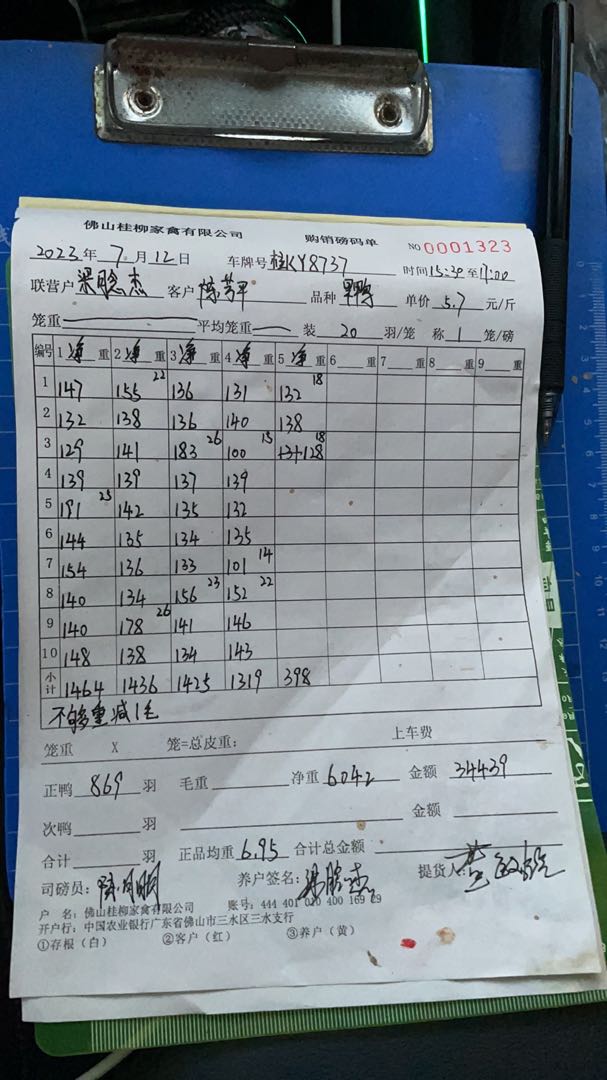 佛山桂柳家禽有限公司 购销磅码单 NO 0001323
2023年 7月 12日 车牌号 桂KY8737 时间15:30至17:00
联营户 梁聪杰 客户 陈芳平 品种 单价 5.7 元/斤
笼重 平均笼重 装 20 羽/笼 称 1 笼/磅
编号 1 净 重 2 净 重 3 净 重 4 净 重 5 净 重 6 重 7 重 8 重 9 重
1 147 155 22 136 131 132 18
2 132 138 136 140 138
3 129 141 183 26 100 15 128 18
4 139 139 137 139
5 191 25 142 135 132
6 144 135 134 135
7 154 136 133 101 14
8 140 134 156 23 152 22
9 140 178 26 141 146
10 148 138 134 143
小计 1464 1436 1425 1319 398
不够重减1毛
笼重 X 笼=总皮重: 上车费
正鸭 869 羽 毛重 净重 6042 金额 34439
次鸭 羽 金额
合计 羽 正品均重 6.95 合计总金额
司磅员: 养户签名: 梁聪杰 提货人:
户 名: 佛山桂柳家禽有限公司 账号: 444 401 010 400 169 29
开户行: 中国农业银行广东省佛山市三水区三水支行
①存根(白) ②客户(红) ③养户(黄)